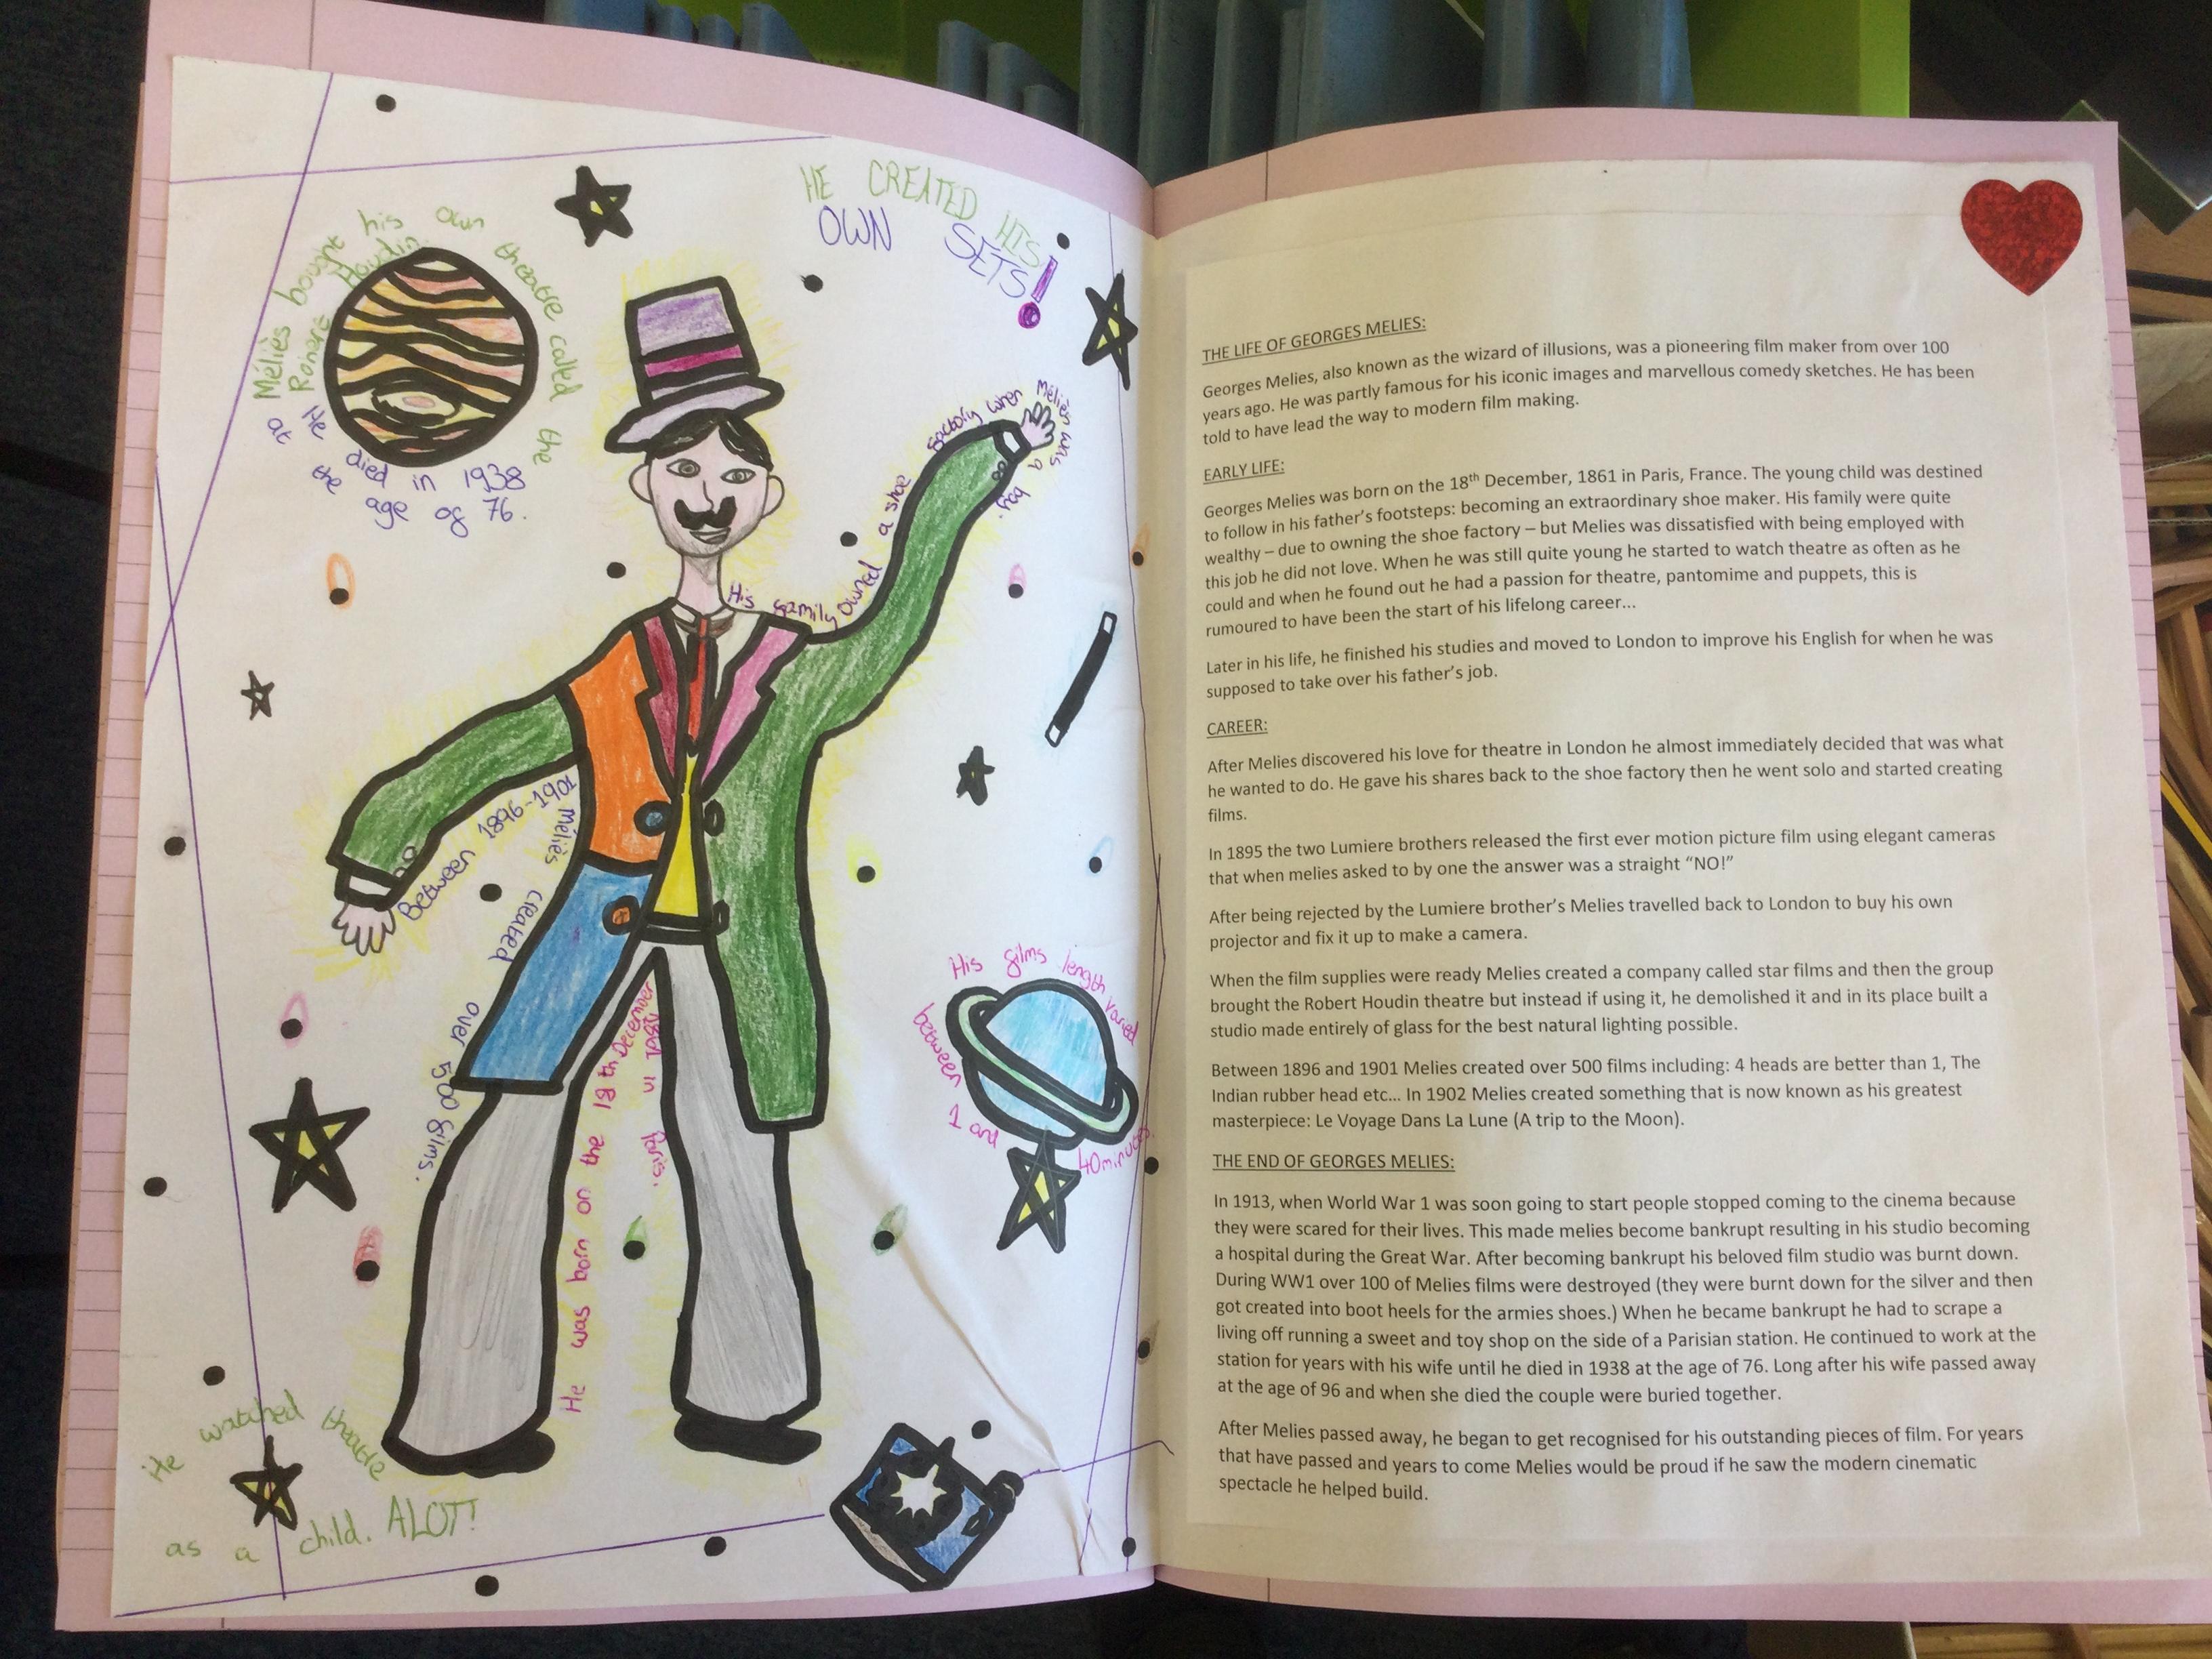 HE CREATED HIS
OWN SETS!
Méliès bought his own theatre called the
Houdin
He died in 1938
at the age of 76.
His family owned a shoe factory when Méliès was a boy.
Between 1896-1901 Méliès created over 500 films.
He was born on the 18th December
1861 in Paris.
His films length varied
between 1 and 40minutes
He watched theatre
as a child. ALOT!
THE LIFE OF GEORGES MELIES:
Georges Melies, also known as the wizard of illusions, was a pioneering film maker from over 100
years ago. He was partly famous for his iconic images and marvellous comedy sketches. He has been
told to have lead the way to modern film making.
EARLY LIFE:
Georges Melies was born on the 18th December, 1861 in Paris, France. The young child was destined
to follow in his father's footsteps: becoming an extraordinary shoe maker. His family were quite
wealthy – due to owning the shoe factory – but Melies was dissatisfied with being employed with
this job he did not love. When he was still quite young he started to watch theatre as often as he
could and when he found out he had a passion for theatre, pantomime and puppets, this is
rumoured to have been the start of his lifelong career...
Later in his life, he finished his studies and moved to London to improve his English for when he was
supposed to take over his father's job.
CAREER:
After Melies discovered his love for theatre in London he almost immediately decided that was what
he wanted to do. He gave his shares back to the shoe factory then he went solo and started creating
films.
In 1895 the two Lumiere brothers released the first ever motion picture film using elegant cameras
that when melies asked to by one the answer was a straight "NO!"
After being rejected by the Lumiere brother's Melies travelled back to London to buy his own
projector and fix it up to make a camera.
When the film supplies were ready Melies created a company called star films and then the group
brought the Robert Houdin theatre but instead if using it, he demolished it and in its place built a
studio made entirely of glass for the best natural lighting possible.
Between 1896 and 1901 Melies created over 500 films including: 4 heads are better than 1, The
Indian rubber head etc... In 1902 Melies created something that is now known as his greatest
masterpiece: Le Voyage Dans La Lune (A trip to the Moon).
THE END OF GEORGES MELIES:
In 1913, when World War 1 was soon going to start people stopped coming to the cinema because
they were scared for their lives. This made melies become bankrupt resulting in his studio becoming
a hospital during the Great War. After becoming bankrupt his beloved film studio was burnt down.
During WW1 over 100 of Melies films were destroyed (they were burnt down for the silver and then
got created into boot heels for the armies shoes.) When he became bankrupt he had to scrape a
living off running a sweet and toy shop on the side of a Parisian station. He continued to work at the
station for years with his wife until he died in 1938 at the age of 76. Long after his wife passed away
at the age of 96 and when she died the couple were buried together.
After Melies passed away, he began to get recognised for his outstanding pieces of film. For years
that have passed and years to come Melies would be proud if he saw the modern cinematic
spectacle he helped build.